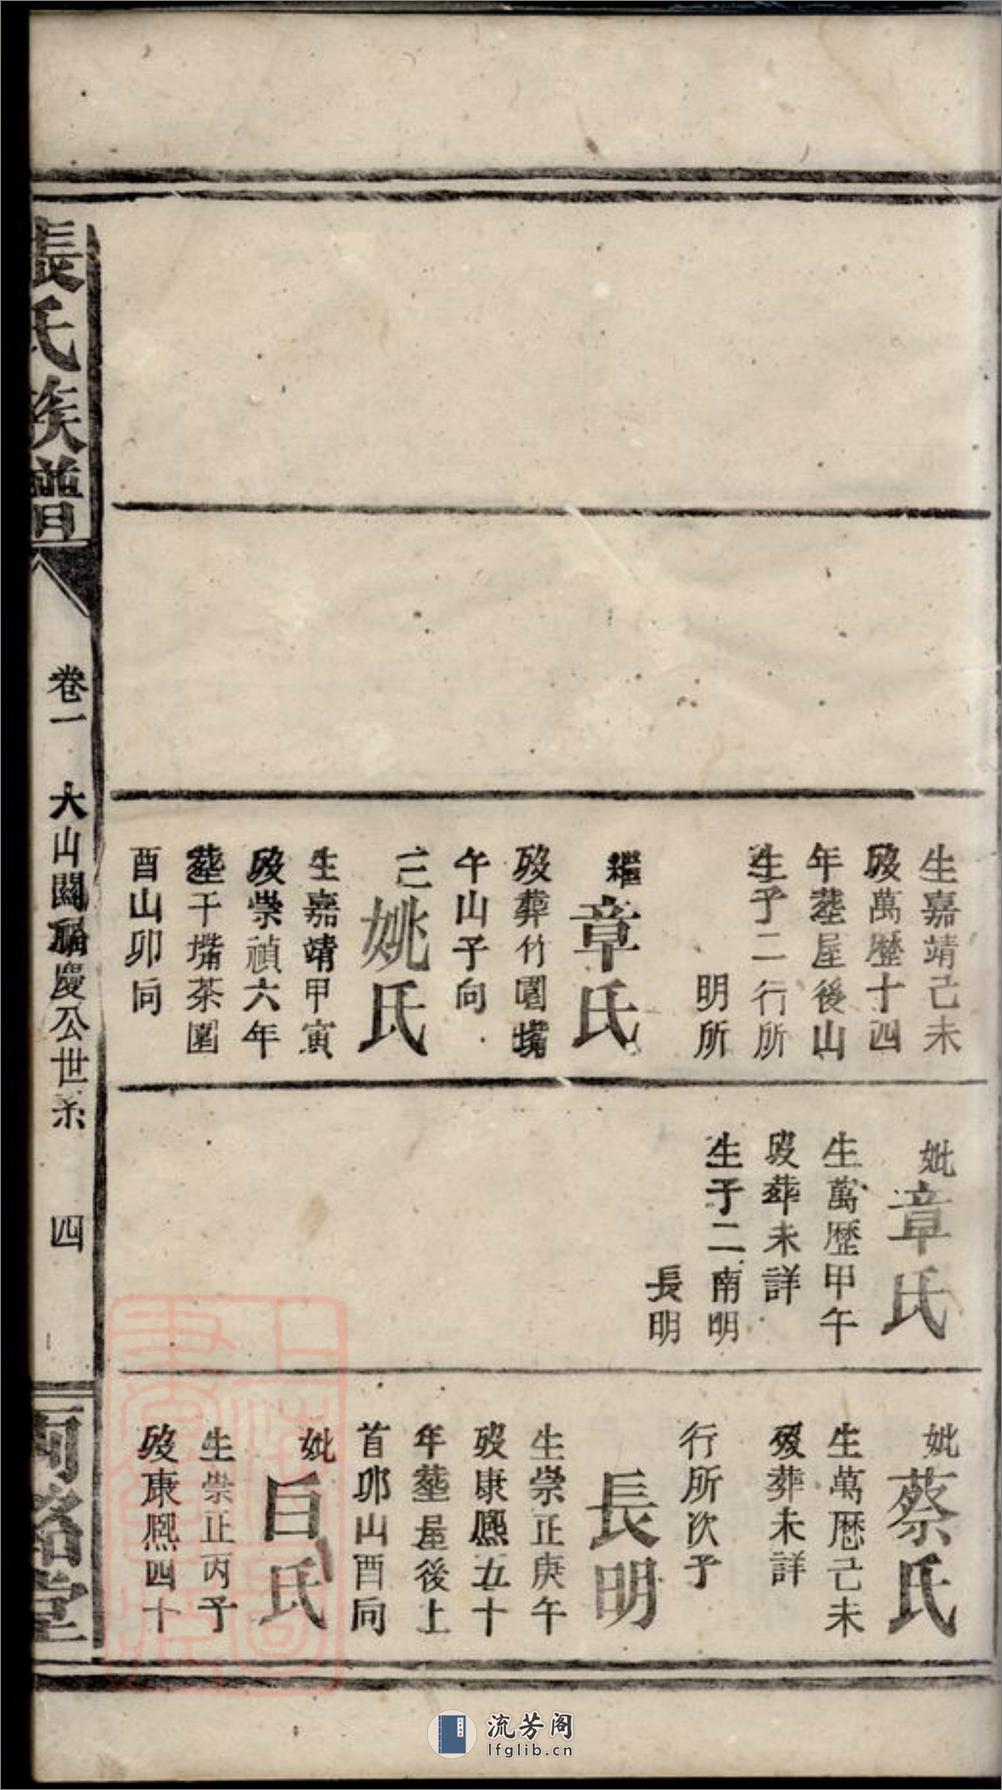 生嘉靖己未
歿萬歷十四
年塟屋後山
生子二行所
明所
繼章氏
歿葬竹園墈
午山子向
三姚氏
生嘉靖甲寅
歿崇禎六年
塟干墈茶園
酉山卯向
妣章氏
生萬歷甲午
歿葬未詳
生子二南明
長明
妣蔡氏
生萬歷己未
歿葬未詳
行所次子
長明
生崇正庚午
歿康熙五十
年塟屋後上
首卯山酉向
妣白氏
生崇正丙子
歿康熙四十
張氏族譜
卷一
大山關福慶公世系
四
百忍堂
流芳阁
lfglib.cn